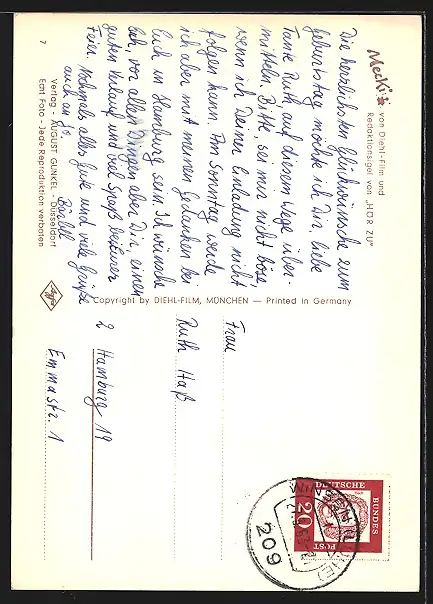 Mecki
von Diehl-Film und
Redaktionsigel von „HÖR ZU"
Die herzlichsten Glückwünsche zum
Geburtstag möchte ich Dir, liebe
Tante Ruth, auf diesem Wege über-
mitteln. Bitte, sei mir nicht böse
wenn ich Deiner Einladung nicht
folgen kann. Am Sonntag werde
ich aber mit meinen Gedanken bei
Euch in Hamburg sein. Ich wünsche
Euch, vor allen Dingen aber Dir, einen
guten Verlauf und viel Spaß bei Eurer
Feier. Nochmals alles Gute und viele Grüße
auch an
Bärbel
Verlag - AUGUST GUNKEL - Düsseldorf
Echt Foto - Jede Reproduktion verboten
7
Agfa
Copyright by DIEHL-FILM, MÜNCHEN — Printed in Germany
Frau
Ruth Haß
2 Hamburg 19
Emmastr. 1
DEUTSCHE
BUNDES
POST
20
WINSEN (LUHE)
209